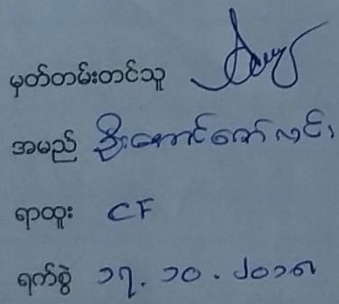 မှတ်တမ်းတင်သူ
အမည် ဦးအောင်ဇော်လင်း
ရာထူး CF
ရက်စွဲ ၁၇.၁၀.၂၀၁၈